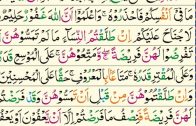 مَا فِىٓ أَنفُسِكُمْ فَٱحْذَرُوهُ ۚ وَٱعْلَمُوٓا۟ أَنَّ ٱللَّهَ غَفُورٌ حَلِيمٌ
لَّا جُنَاحَ عَلَيْكُمْ إِن طَلَّقْتُمُ ٱلنِّسَآءَ مَا لَمْ تَمَسُّوهُنَّ أَوْ
تَفْرِضُوا۟ لَهُنَّ فَرِيضَةً ۚ وَمَتِّعُوهُنَّ عَلَى ٱلْمُوسِعِ قَدَرُهُۥ
وَعَلَى ٱلْمُقْتِرِ قَدَرُهُۥ مَتَـٰعًۢا بِٱلْمَعْرُوفِ ۖ حَقًّا عَلَى ٱلْمُحْسِنِينَ
وَإِن طَلَّقْتُمُوهُنَّ مِن قَبْلِ أَن تَمَسُّوهُنَّ وَقَدْ فَرَضْتُمْ
لَهُنَّ فَرِيضَةً فَنِصْفُ مَا فَرَضْتُمْ إِلَّآ أَن يَعْفُونَ أَوْ يَعْفُوَا۟